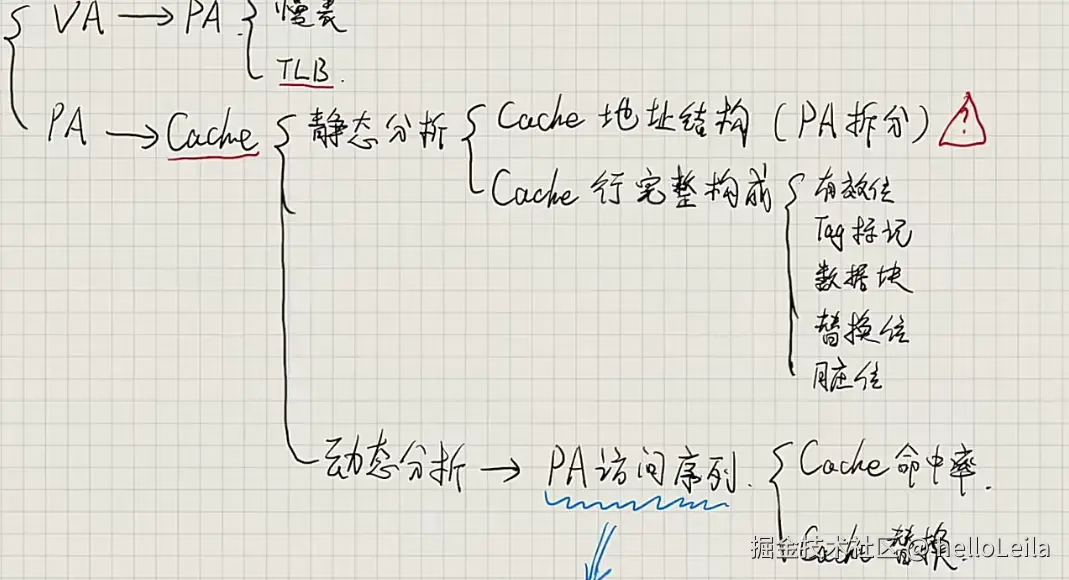 VA → PA 慢表
TLB.
PA → Cache 静态分析 Cache 地址结构 (PA拆分) ?
Cache 行完整构成 有效位
Tag标记
数据块
替换位
动态分析 → PA访问序列. Cache 命中率.
Cache 替换.
掘金技术社区 @ helloLeila